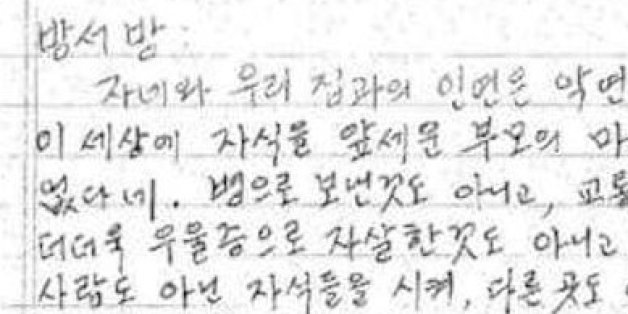 방서방.
자네와 우리 집과의 인연은 악연
이 세상에 자식을 앞세운 부모의 마
없다네. 병으로 보낸것도 아니고, 교통
더더욱 우울증으로 자살한것도 아니고
사람도 아닌 자식들을 시켜, 다른 곳도